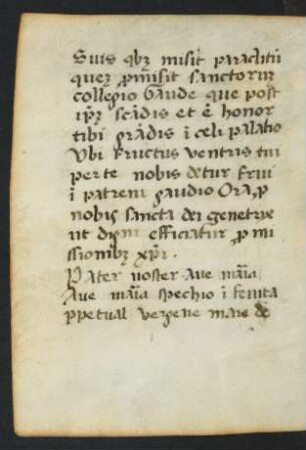 Suis qbꝫ misit paraclitū
queꝫ ꝓmisit sanctorum
collegio Gaude que post
ip̄ꝫ scādis et ē honor
tibi grādis ī celi palatio
Vbi fructus ventris tui
per te nobis detur frui
ī patrem gaudio Ora ꝓ
nobis sancta dei genetrix
ut digni efficiatur ꝓ mi
ssionibꝫ xp̄i.
Pater noster Aue maīa
Aue maīa spechio ī
ꝑpetual vergene mare de